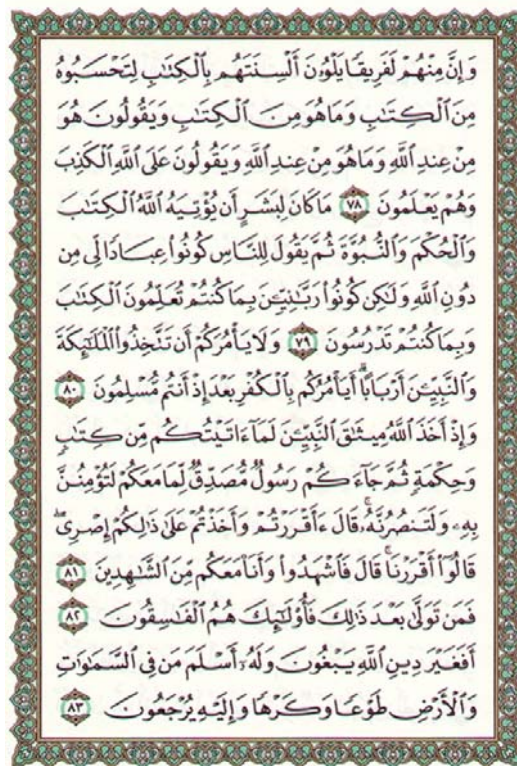 وَإِنَّ مِنْهُمْ لَفَرِيقًا يَلْوُۥنَ أَلْسِنَتَهُم بِٱلْكِتَٰبِ لِتَحْسَبُوهُ
مِنَ ٱلْكِتَٰبِ وَمَا هُوَ مِنَ ٱلْكِتَٰبِ وَيَقُولُونَ هُوَ
مِنْ عِندِ ٱللَّهِ وَمَا هُوَ مِنْ عِندِ ٱللَّهِ وَيَقُولُونَ عَلَى ٱللَّهِ ٱلْكَذِبَ
وَهُمْ يَعْلَمُونَ ٧٨ مَا كَانَ لِبَشَرٍ أَن يُؤْتِيَهُ ٱللَّهُ ٱلْكِتَٰبَ
وَٱلْحُكْمَ وَٱلنُّبُوَّةَ ثُمَّ يَقُولَ لِلنَّاسِ كُونُوا۟ عِبَادًا لِّى مِن
دُونِ ٱللَّهِ وَلَٰكِن كُونُوا۟ رَبَّٰنِيِّۦنَ بِمَا كُنتُمْ تُعَلِّمُونَ ٱلْكِتَٰبَ
وَبِمَا كُنتُمْ تَدْرُسُونَ ٧٩ وَلَا يَأْمُرَكُمْ أَن تَتَّخِذُوا۟ ٱلْمَلَٰٓئِكَةَ
وَٱلنَّبِيِّۦنَ أَرْبَابًا ۗ أَيَأْمُرُكُم بِٱلْكُفْرِ بَعْدَ إِذْ أَنتُم مُّسْلِمُونَ ٨٠
وَإِذْ أَخَذَ ٱللَّهُ مِيثَٰقَ ٱلنَّبِيِّۦنَ لَمَآ ءَاتَيْتُكُم مِّن كِتَٰبٍ
وَحِكْمَةٍ ثُمَّ جَآءَكُمْ رَسُولٌ مُّصَدِّقٌ لِّمَا مَعَكُمْ لَتُؤْمِنُنَّ
بِهِۦ وَلَتَنصُرُنَّهُۥ ۚ قَالَ ءَأَقْرَرْتُمْ وَأَخَذْتُمْ عَلَىٰ ذَٰلِكُمْ إِصْرِى ۖ
قَالُوٓا۟ أَقْرَرْنَا ۚ قَالَ فَٱشْهَدُوا۟ وَأَنَا۠ مَعَكُم مِّنَ ٱلشَّٰهِدِينَ ٨١
فَمَن تَوَلَّىٰ بَعْدَ ذَٰلِكَ فَأُو۟لَٰٓئِكَ هُمُ ٱلْفَٰسِقُونَ ٨٢
أَفَغَيْرَ دِينِ ٱللَّهِ يَبْغُونَ وَلَهُۥٓ أَسْلَمَ مَن فِى ٱلسَّمَٰوَٰتِ
وَٱلْأَرْضِ طَوْعًا وَكَرْهًا وَإِلَيْهِ يُرْجَعُونَ ٨٣